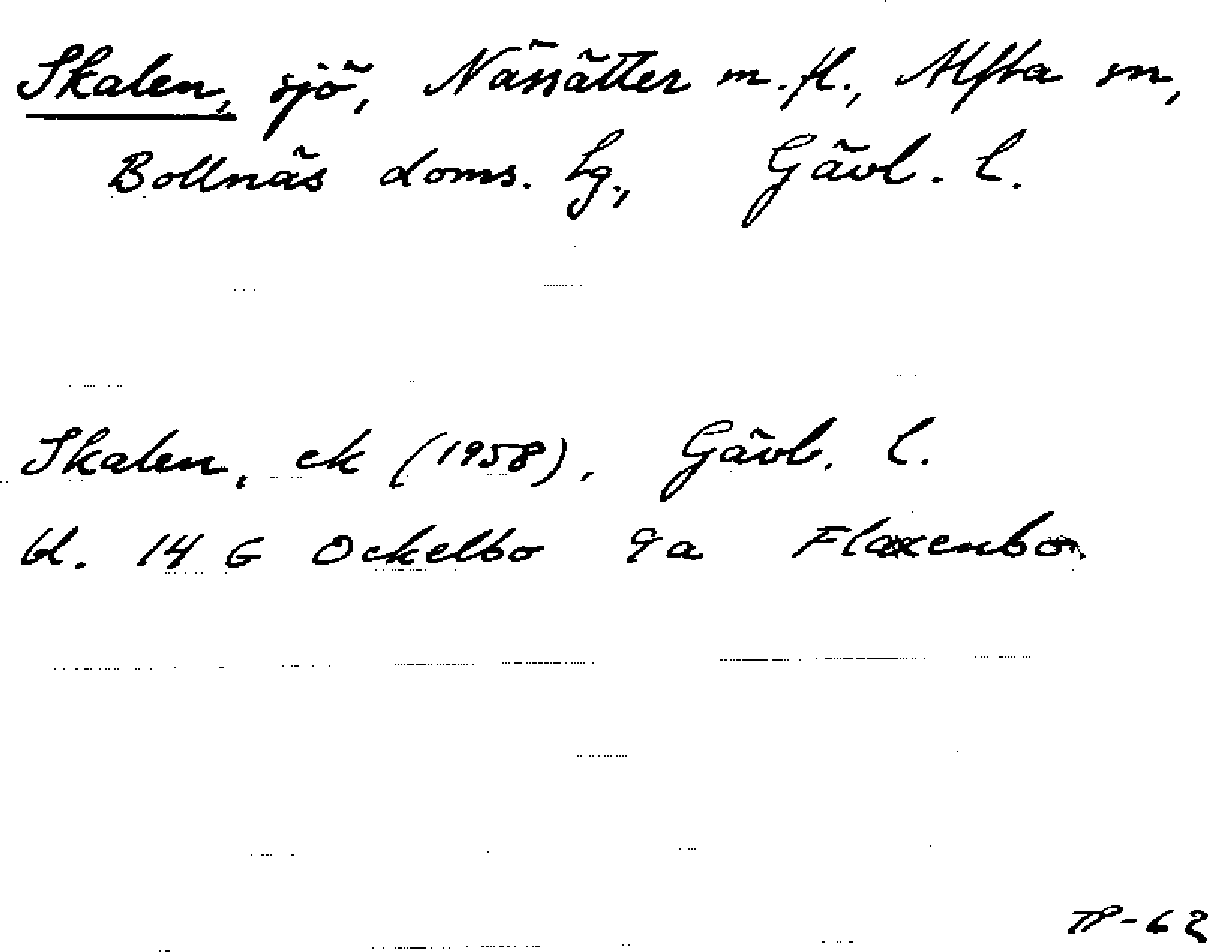 Skalen, sjö, Nässätter m.fl., Alfta sn,
Bollnäs doms. lg., Gävl. l.
Skalen, ek (1958), Gävl. l.
bl. 14 G Ockelbo 9a Flaxenbo.
TP-62